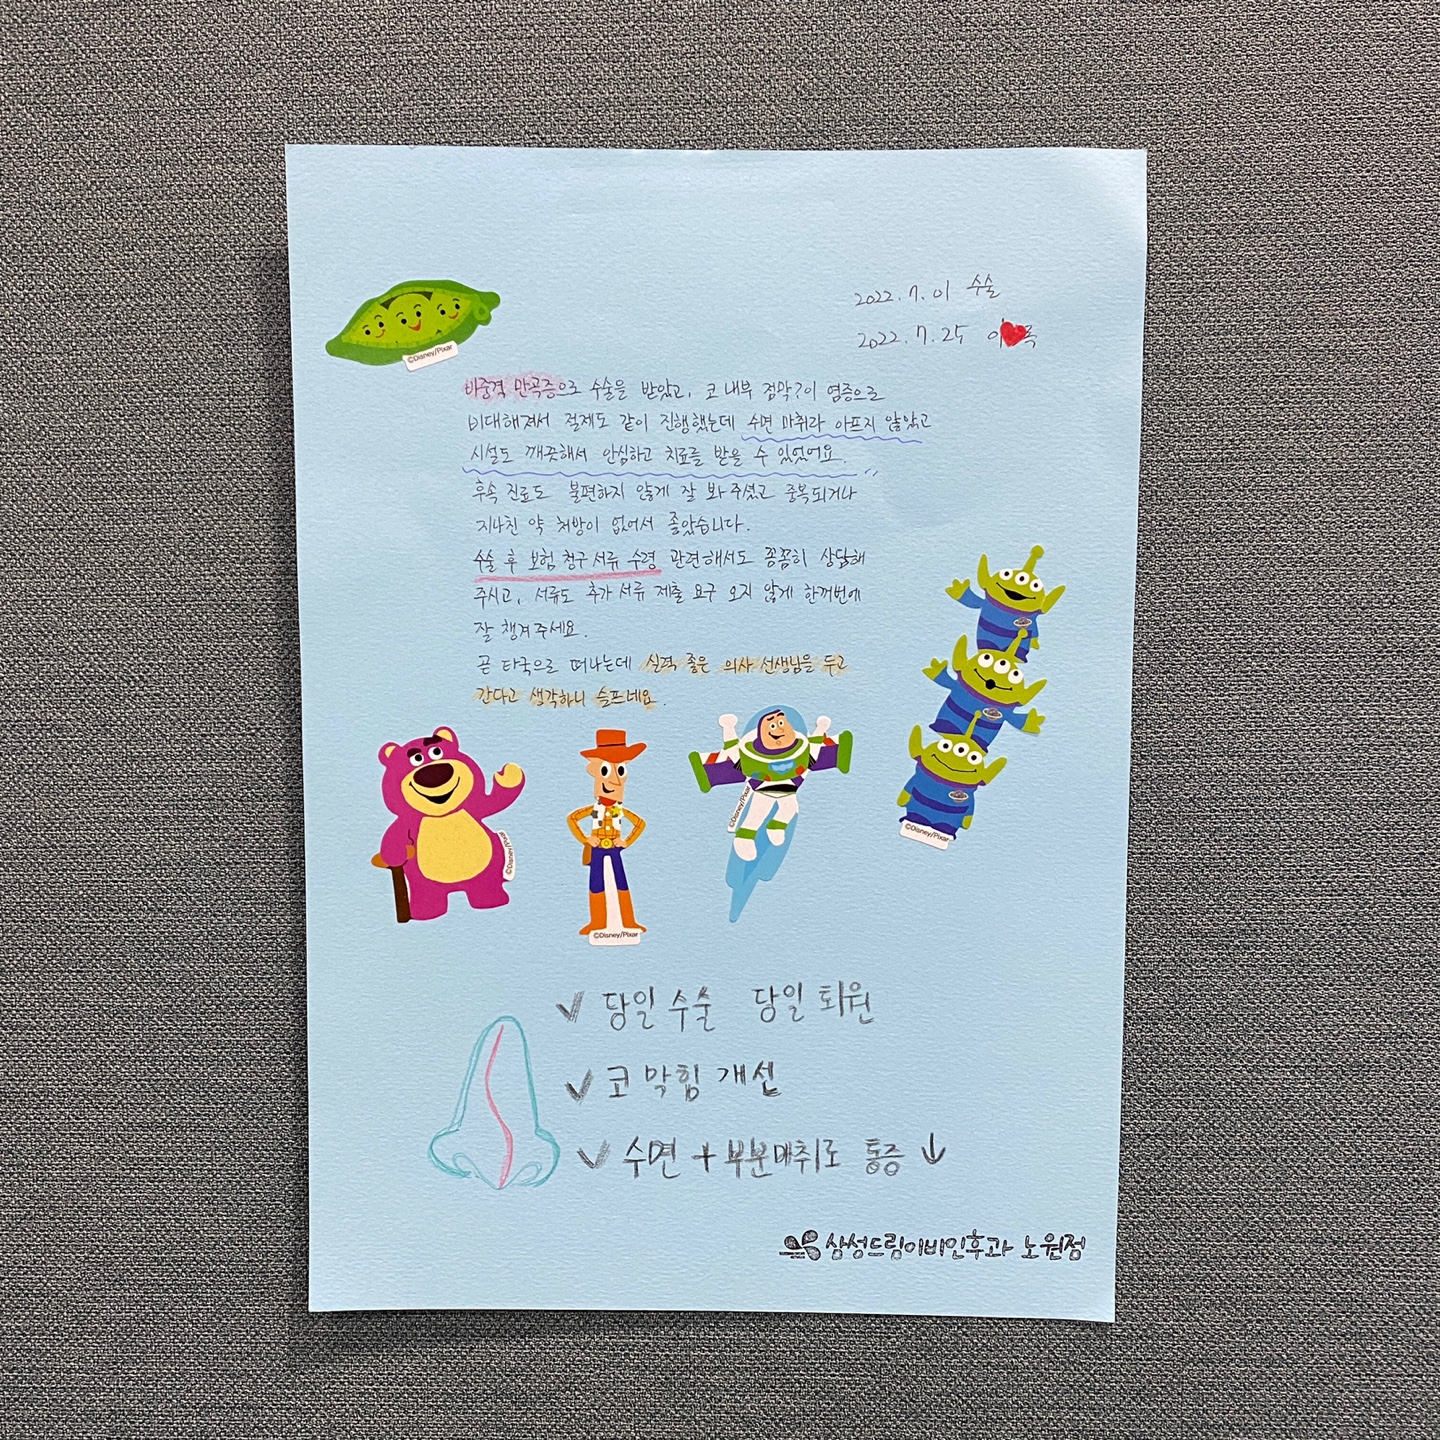 2022.7.01 수술
2022.7.25 이❤록
©Disney/Pixar
비중격 만곡증으로 수술을 받았고, 코 내부 점막?이 염증으로
비대해져서 절제도 같이 진행했는데 수면 마취라 아프지 않았고
시설도 깨끗해서 안심하고 치료를 받을 수 있었어요.
후속 진료도 불편하지 않게 잘 봐주셨고 중복되거나
지나친 약 처방이 없어서 좋았습니다.
수술 후 보험 청구 서류 수령 관련해서도 꼼꼼히 상담해
주시고, 서류도 추가 서류 제출 요구 오지 않게 한꺼번에
잘 챙겨주세요.
곧 타국으로 떠나는데 실력 좋은 의사 선생님을 두고
간다고 생각하니 슬프네요.
©Disney/Pixar
©Disney/Pixar
©Disney/Pixar
©Disney/Pixar
✓ 당일 수술 당일 퇴원
✓ 코막힘 개선
✓ 수면 + 부분마취로 통증 ↓
삼성드림이비인후과 노원점